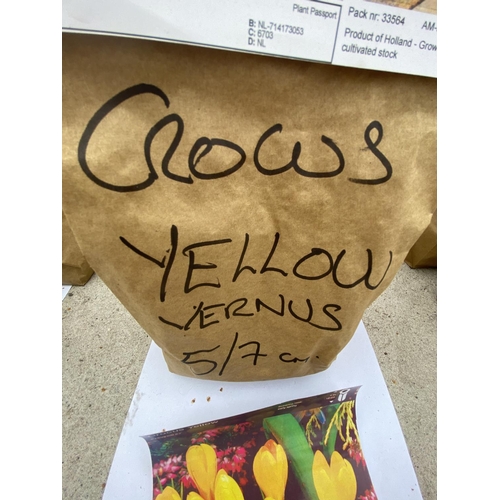 Plant Passport
B: NL-714173053
C: 6703
D: NL
Pack nr: 33564
Product of Holland - Grow
cultivated stock
CROWS
YELLOW
VERNUS
5/7 cm.